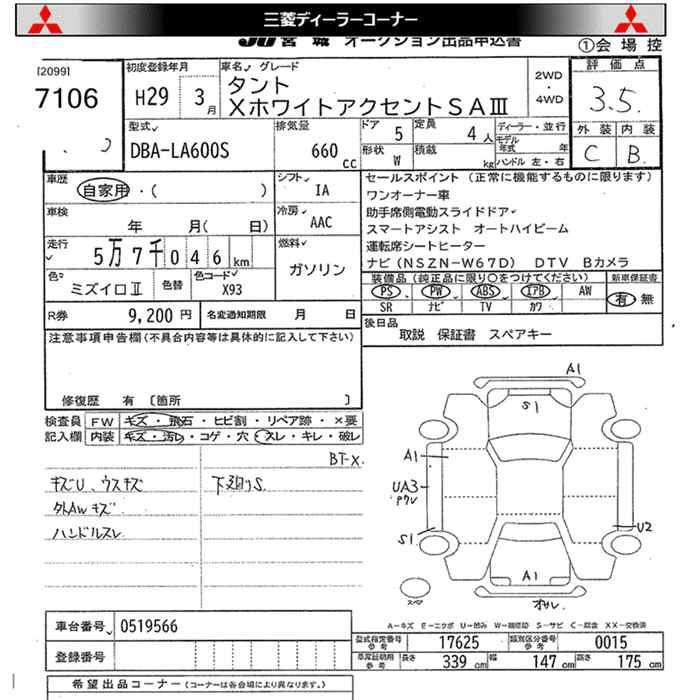 三菱ディーラーコーナー
JU 宮城 オークション出品申込書
①会 場 控
[2099]
7106
初度登録年月
H29 3月
車名 グレード
タント
XホワイトアクセントSAⅢ
2WD
・
4WD
評価点
3.5
外装 内装
C B
型式
DBA-LA600S
排気量
660 cc
ドア 5
定員 4人
形状 W
積載 kg
ディーラー・並行
モデル年式 年
ハンドル 左・右
車歴
自家用・( )
シフト IA
車検
年 月( 日)
冷房 AAC
走行
5万7千046km
燃料
ガソリン
色 ミズイロⅡ
色替
色コード X93
セールスポイント (正常に機能するものに限ります)
ワンオーナー車
助手席側電動スライドドア
スマートアシスト オートハイビーム
運転席シートヒーター
ナビ(NSZN-W67D) DTV Bカメラ
装備品(純正品に限り〇をつけてください)
新車保証書
PS PW ABS エアB AW
SR ナビ TV カワ
有 無
R券 9,200円
名変通知期限 月 日
後日品
取説 保証書 スペアキー
注意事項申告欄(不具合内容等は具体的に記入して下さい)
修復歴 有 〔箇所 〕
検査員
記入欄
FW キズ・飛石・ヒビ割・リペア跡・×要
内装 キズ・汚レ・コゲ・穴・スレ・キレ・破レ
BT-X.
キズU、ウスキズ
下廻りS
外AWキズ
ハンドルスレ
A1
S1
A1
UA3
S1
U2
A1
スペア
A-キズ E-エクボ U-凹み W-補修跡 S-サビ C-腐食 XX-交換済
車台番号 0519566
登録番号
型式指定番号
参考
17625
類別区分番号
参考
0015
車庫証明用
参考
長さ 339cm
幅 147cm
高さ 175cm
希望出品コーナー (コーナーは各会場により異なります。)